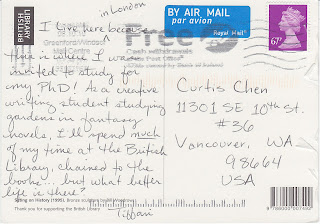 in London
I live here because
this is where I was
invited to study for
my PhD! As a creative
writing student studying
gardens in fantasy
novels, I'll spend much
of my time at the British
Library, chained to the
books... but what better
life is there?
Tiffani
BRITISH
LIBRARY
Greenford/Windsor
Mail Centre
Free
Cash withdrawals
Post Office
BY AIR MAIL
par avion
Royal Mail
67P
Curtis Chen
11301 SE 10th St.
#36
Vancouver, WA
98664
USA
Sitting on History (1995). Bronze sculpture by
Thank you for supporting the British Library